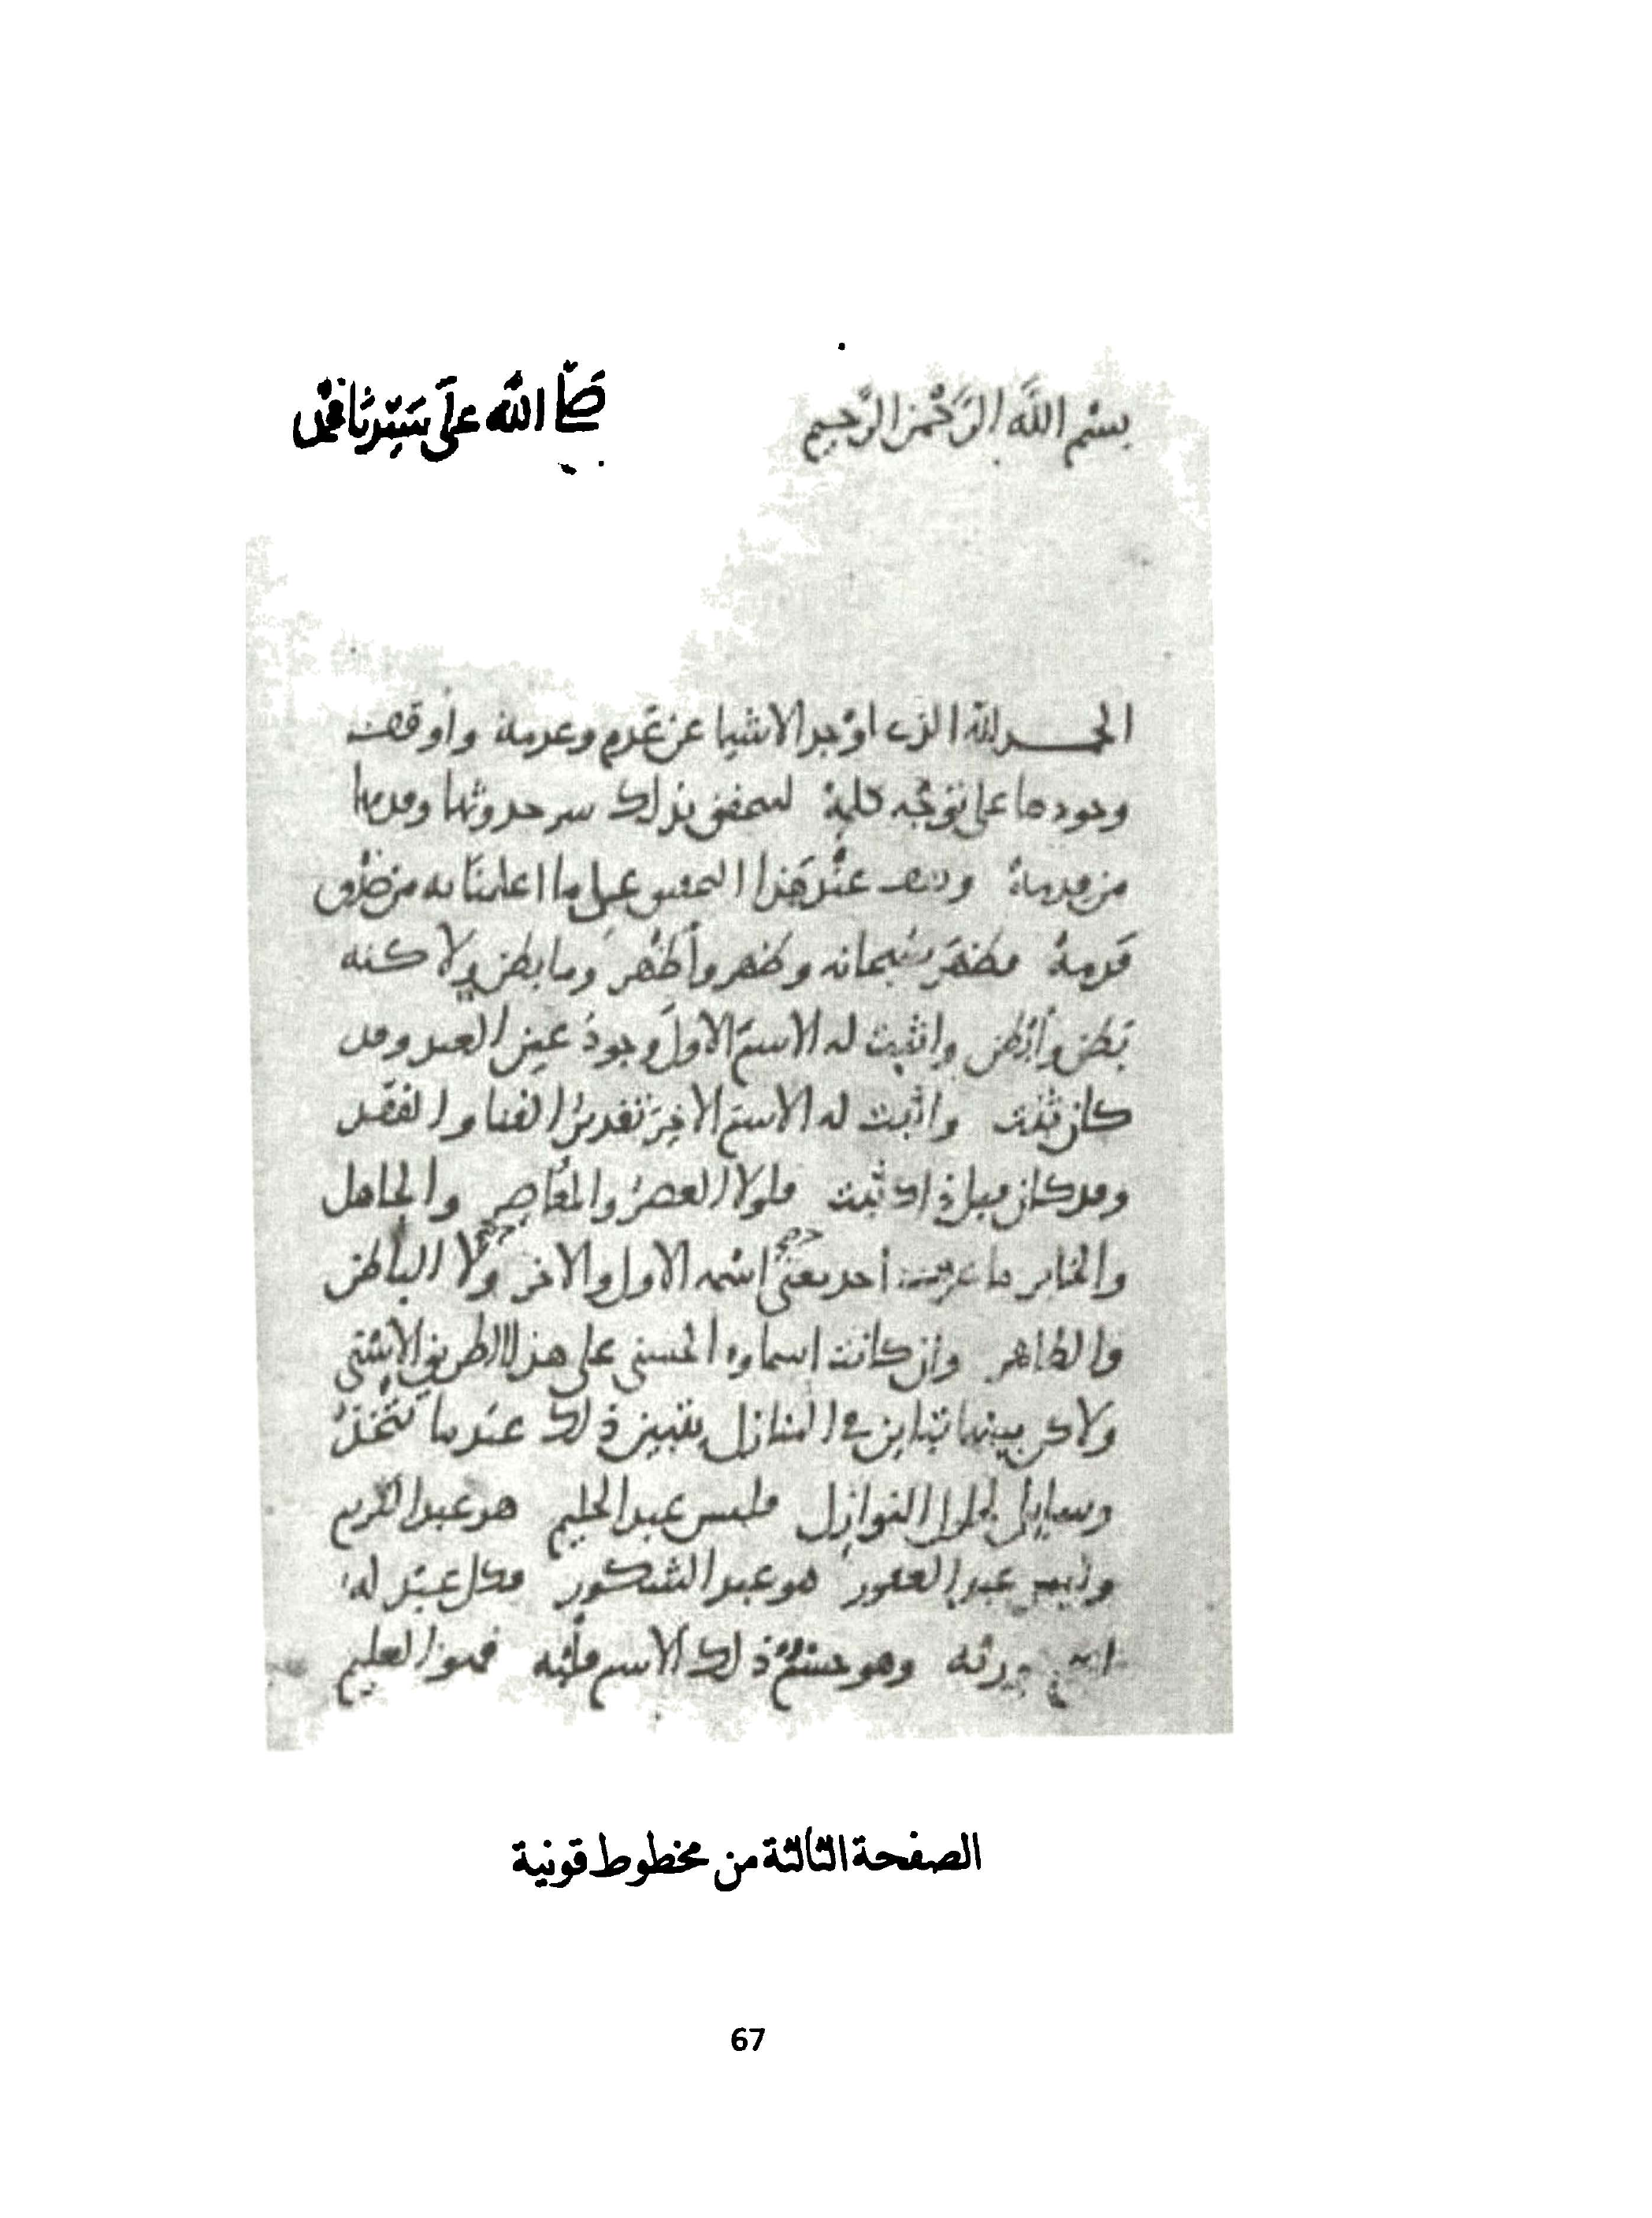 بسْم اللَّه الرَّحْمن الرَّحيم
صَلَّى اللّه على سَيّدنَا محمّد
الحمد لله الذى اوْجد الاشيا عن عَدم وعدمهْ واوقف
وجودها على توَجّه كلمهْ لنحقق بذلك سر حدوثها وقدمها
من قدمهْ ونقف عنْد هَذا التحقيق على ما اعلمنَا به من صْدق
قَدمهْ فظهَر سُبحانه وظهر وأظْهر وما بطن ولاكنه
بَطن وأبْطن واثبت له الاسمَ الاولَ وجودُ عين العبد وقد
كان ثبت واثبت له الاسمَ الاخِرَ تقديرُ الفنا والفقد
وقد كان قبل ذلك ثبت فلولا العصرُ والمُعاصر والجاهل
والخابر ما عرف أحد معنى اسْمه الاول والاخر ولا الباطن
والظاهر وان كانت اسماوه الحسنى على هذا الطريق الاسْنى
ولاكن بينها تباين في المنازل يتبين ذلك عنَدما تتّخذُ
وسايل لحلول النوازل فليس عبد الحليم هو عبد الكريم
وليس عبد الغفور هو عبد الشكور فكل عبْد له
اسم هو ربُّه وهو جسْمٌ ذلك الاسم قلبُه فهو العليم
الصفحة الثالثة من مخطوط قونية
67